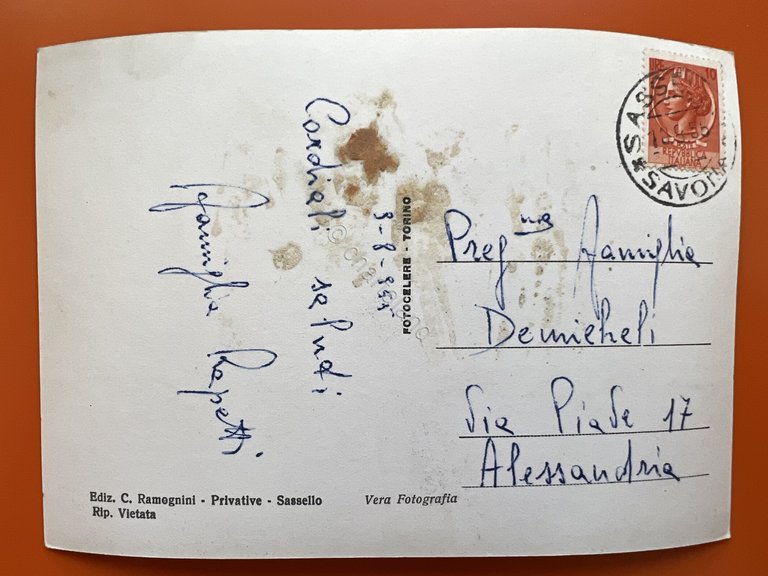 Cordiali saludi
Famiglia Rapetti
FOTOCELERE - TORINO
LIRE 10
REPUBBLICA
ITALIANA
* SASSELLO
SAVONA
Preg.ma Famiglia
Demicheli
Via Piave 17
Alessandria
Ediz. C. Ramognini - Privative - Sassello
Rip. Vietata
Vera Fotografia